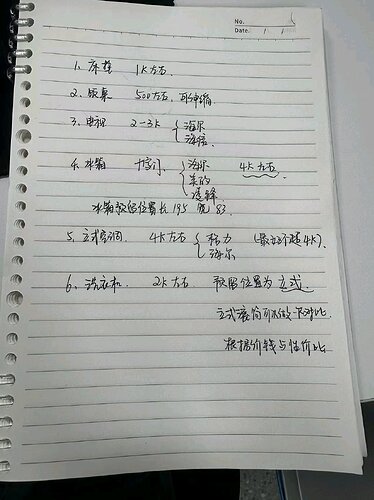 No.
Date.
1、床垫 1K左右.
2、饭桌 500左右、可伸缩
3、电视 2-3K 海尔
海信
4、冰箱 十字门 海尔 4K左右
美的
容声
冰箱预留位置长195 宽83.
5、立式空调 4K左右 格力 (最好不超4K).
海尔
6、洗衣机 2K左右 预留位置为立式.
立式滚筒可以做一下对比.
根据价钱与性价比